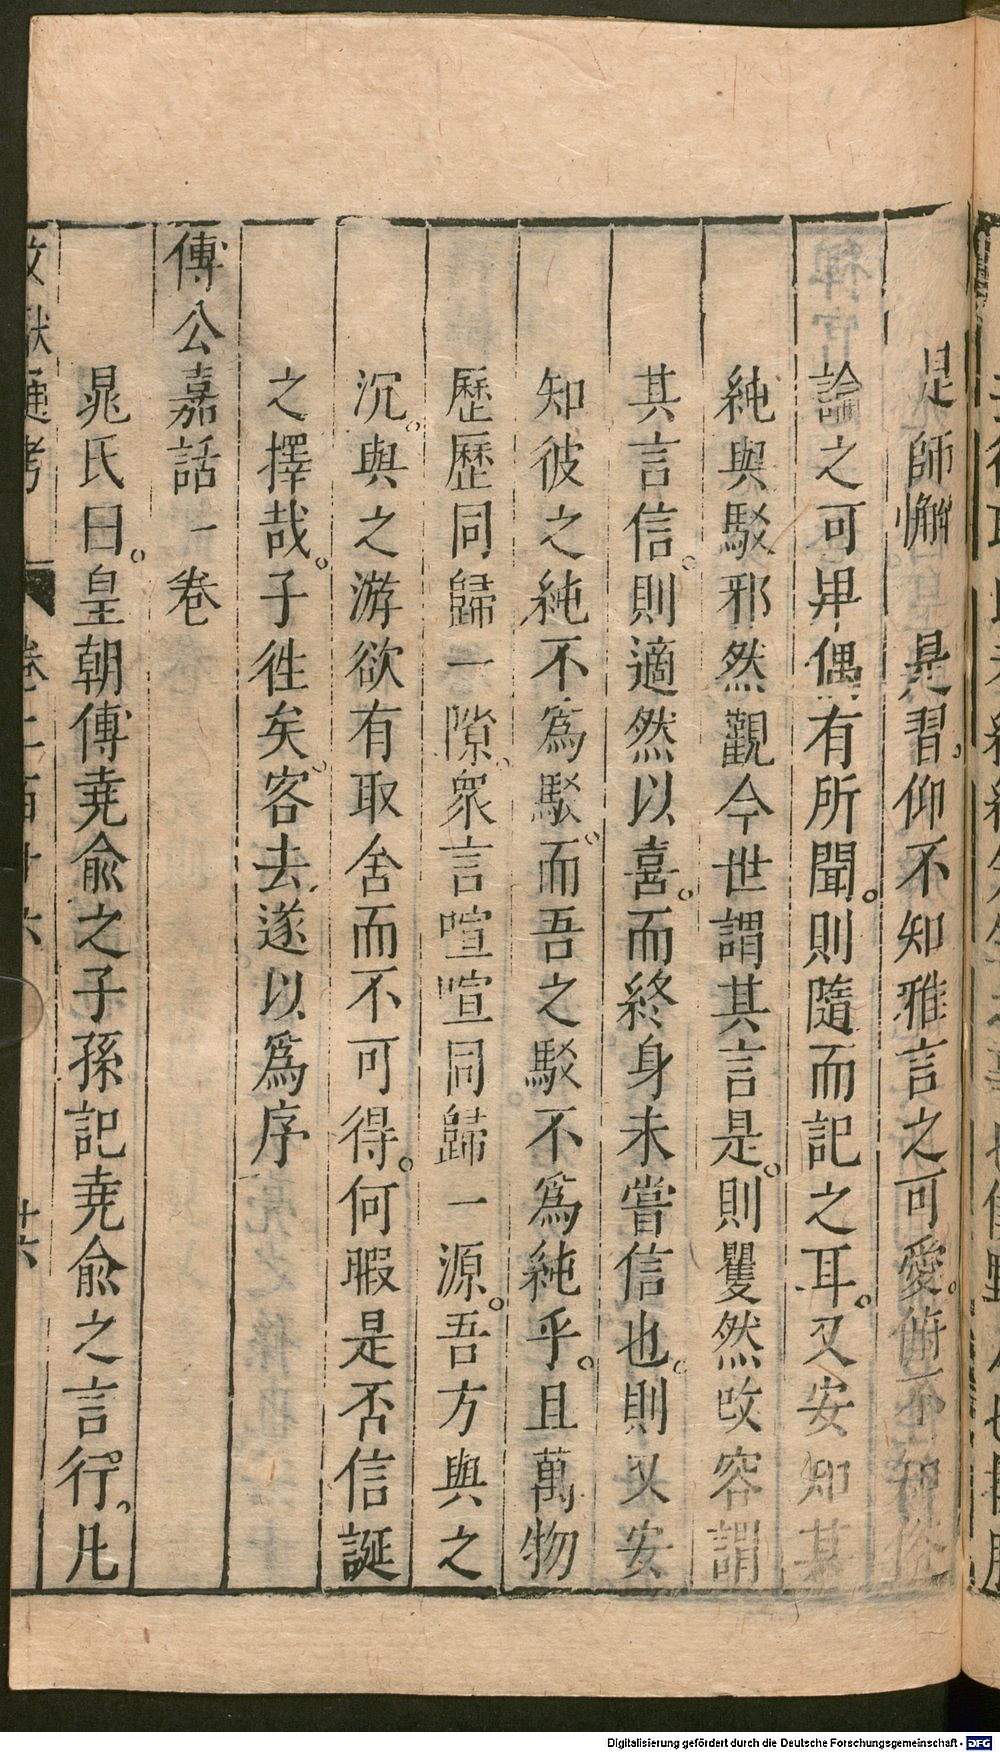 是師懶　是習仰不知雅言之可愛俯不知俗
論之可卑偶有所聞則隨而記之耳又安知其
純與駁邪然觀今世謂其言是則矍然改容謂
其言信則適然以喜而終身未嘗信也則又安
知彼之純不爲駁而吾之駁不爲純乎且萬物
歷歷同歸一隙衆言喧喧同歸一源吾方與之
沉與之游欲有取舍而不可得何暇是否信誕
之擇哉子徃矣客去遂以爲序
傅公嘉話一卷
晁氏曰皇朝傅堯俞之子孫記堯俞之言行凡
文獻通考　卷二百十六　廿六
Digitalisierung gefördert durch die Deutsche Forschungsgemeinschaft - DFG